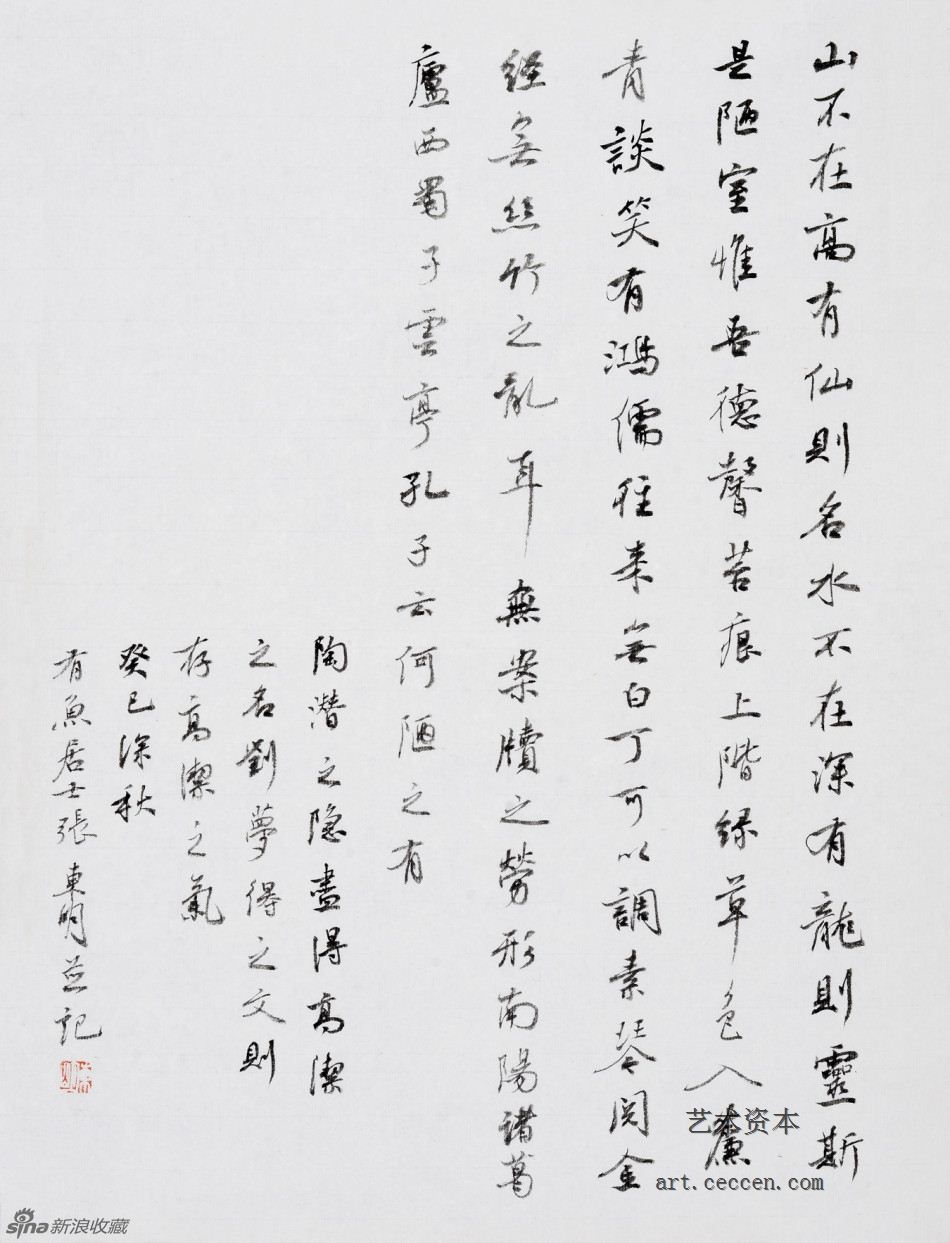 山不在高有仙則名水不在深有龍則靈斯
是陋室惟吾德馨苔痕上階緑草色入簾
青談笑有鴻儒往来無白丁可以調素琴閱金
経無絲竹之亂耳無案牘之勞形南陽諸葛
廬西蜀子雲亭孔子云何陋之有
陶潜之隐盡得高潔
之名劉夢得之文則
存高潔之氣
癸巳深秋
有魚居士張東明並記
艺术资本
art.ceccen.com
sina新浪收藏